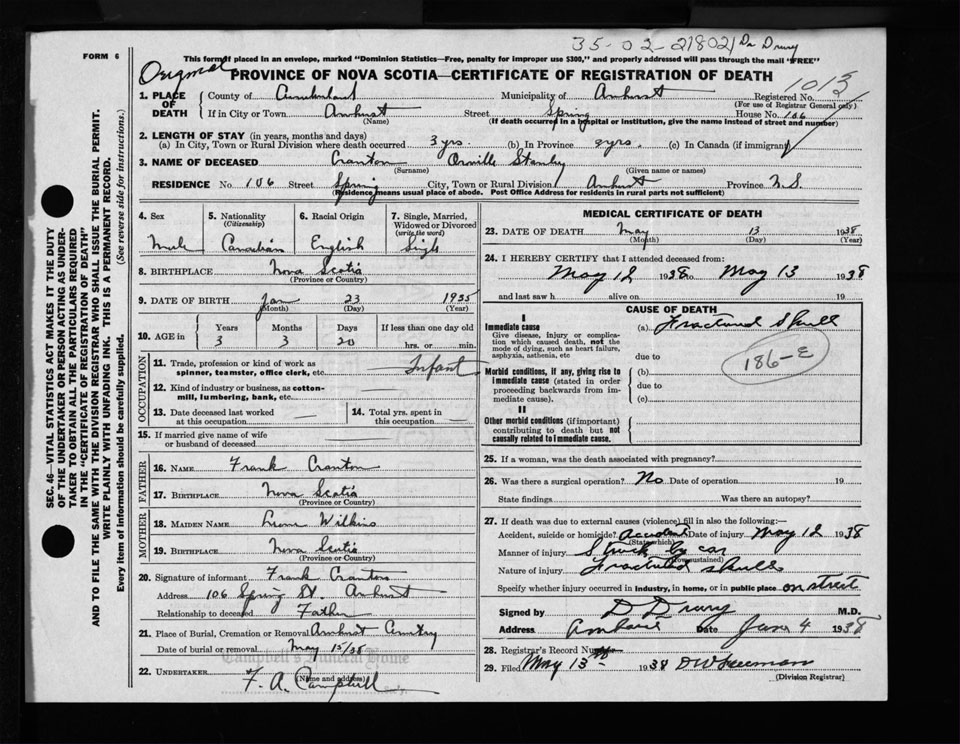 35-02-21802 Dr Drury
FORM 6
This form if placed in an envelope, marked "Dominion Statistics—Free, penalty for improper use $300," and properly addressed will pass through the mail "FREE"
Original
PROVINCE OF NOVA SCOTIA—CERTIFICATE OF REGISTRATION OF DEATH
1013
1. PLACE OF DEATH
County of Cumberland Municipality of Amherst Registered No.
(For use of Registrar General only)
If in City or Town Amherst Street Spring House No. 106
(Name) (If death occurred in a hospital or institution, give the name instead of street and number)
2. LENGTH OF STAY (in years, months and days)
(a) In City, Town or Rural Division where death occurred 3 yrs. (b) In Province 3 yrs. (c) In Canada (if immigrant)
3. NAME OF DECEASED Cranton Orville Stanley
(Surname) (Given name or names)
RESIDENCE No. 106 Street Spring City, Town or Rural Division Amherst Province N.S.
(Residence means usual place of abode. Post Office Address for residents in rural parts not sufficient)
4. Sex
Male
5. Nationality
(Citizenship)
Canadian
6. Racial Origin
English
7. Single, Married, Widowed or Divorced
(write the word)
Single
8. BIRTHPLACE Nova Scotia
(Province or Country)
9. DATE OF BIRTH Jan 23 1935
(Month) (Day) (Year)
10. AGE in
Years Months Days If less than one day old
3 3 20 hrs. or min.
OCCUPATION
11. Trade, profession or kind of work as spinner, teamster, office clerk, etc. Infant
12. Kind of industry or business, as cotton-mill, lumbering, bank, etc.
13. Date deceased last worked at this occupation
14. Total yrs. spent in this occupation
15. If married give name of wife or husband of deceased
FATHER
16. NAME Frank Cranton
17. BIRTHPLACE Nova Scotia
(Province or Country)
MOTHER
18. MAIDEN NAME Wilkins
19. BIRTHPLACE Nova Scotia
(Province or Country)
20. Signature of informant Frank Cranton
Address 106 Spring St. Amherst
Relationship to deceased Father
21. Place of Burial, Cremation or Removal Amherst Cemtry
Date of burial or removal May 15/38
Campbell's Funeral Home
22. UNDERTAKER F. A. Campbell
(Name and address)
MEDICAL CERTIFICATE OF DEATH
23. DATE OF DEATH May 13 1938
(Month) (Day) (Year)
24. I HEREBY CERTIFY that I attended deceased from:
May 12 1938 to May 13 1938
and last saw h alive on 19
CAUSE OF DEATH
I
Immediate cause
Give disease, injury or complication which caused death, not the mode of dying, such as heart failure, asphyxia, asthenia, etc
(a) Fractured Skull
due to
186-E
Morbid conditions, if any, giving rise to immediate cause (stated in order proceeding backwards from immediate cause).
(b)
due to
(c)
II
Other morbid conditions (if important) contributing to death but not causally related to immediate cause.
25. If a woman, was the death associated with pregnancy?
26. Was there a surgical operation? No Date of operation 19
State findings Was there an autopsy?
27. If death was due to external causes (violence) fill in also the following:—
Accident, suicide or homicide? Accident Date of injury May 12 1938
(State which)
Manner of injury Struck by car
Nature of injury Fractured skull
Specify whether injury occurred in industry, in home, or in public place on street
Signed by D Drury M.D.
Address Amherst Date June 4 1938
28. Registrar's Record Number
29. Filed May 13th 1938
(Division Registrar)
SEC. 46—VITAL STATISTICS ACT MAKES IT THE DUTY
OF THE UNDERTAKER OR PERSON ACTING AS UNDER-
TAKER TO OBTAIN ALL THE PARTICULARS REQUIRED
IN THE "CERTIFICATE OF REGISTRATION OF DEATH"
AND TO FILE THE SAME WITH THE DIVISION REGISTRAR WHO SHALL ISSUE THE BURIAL PERMIT.
WRITE PLAINLY WITH UNFADING INK. THIS IS A PERMANENT RECORD.
Every item of information should be carefully supplied. (See reverse side for instructions.)